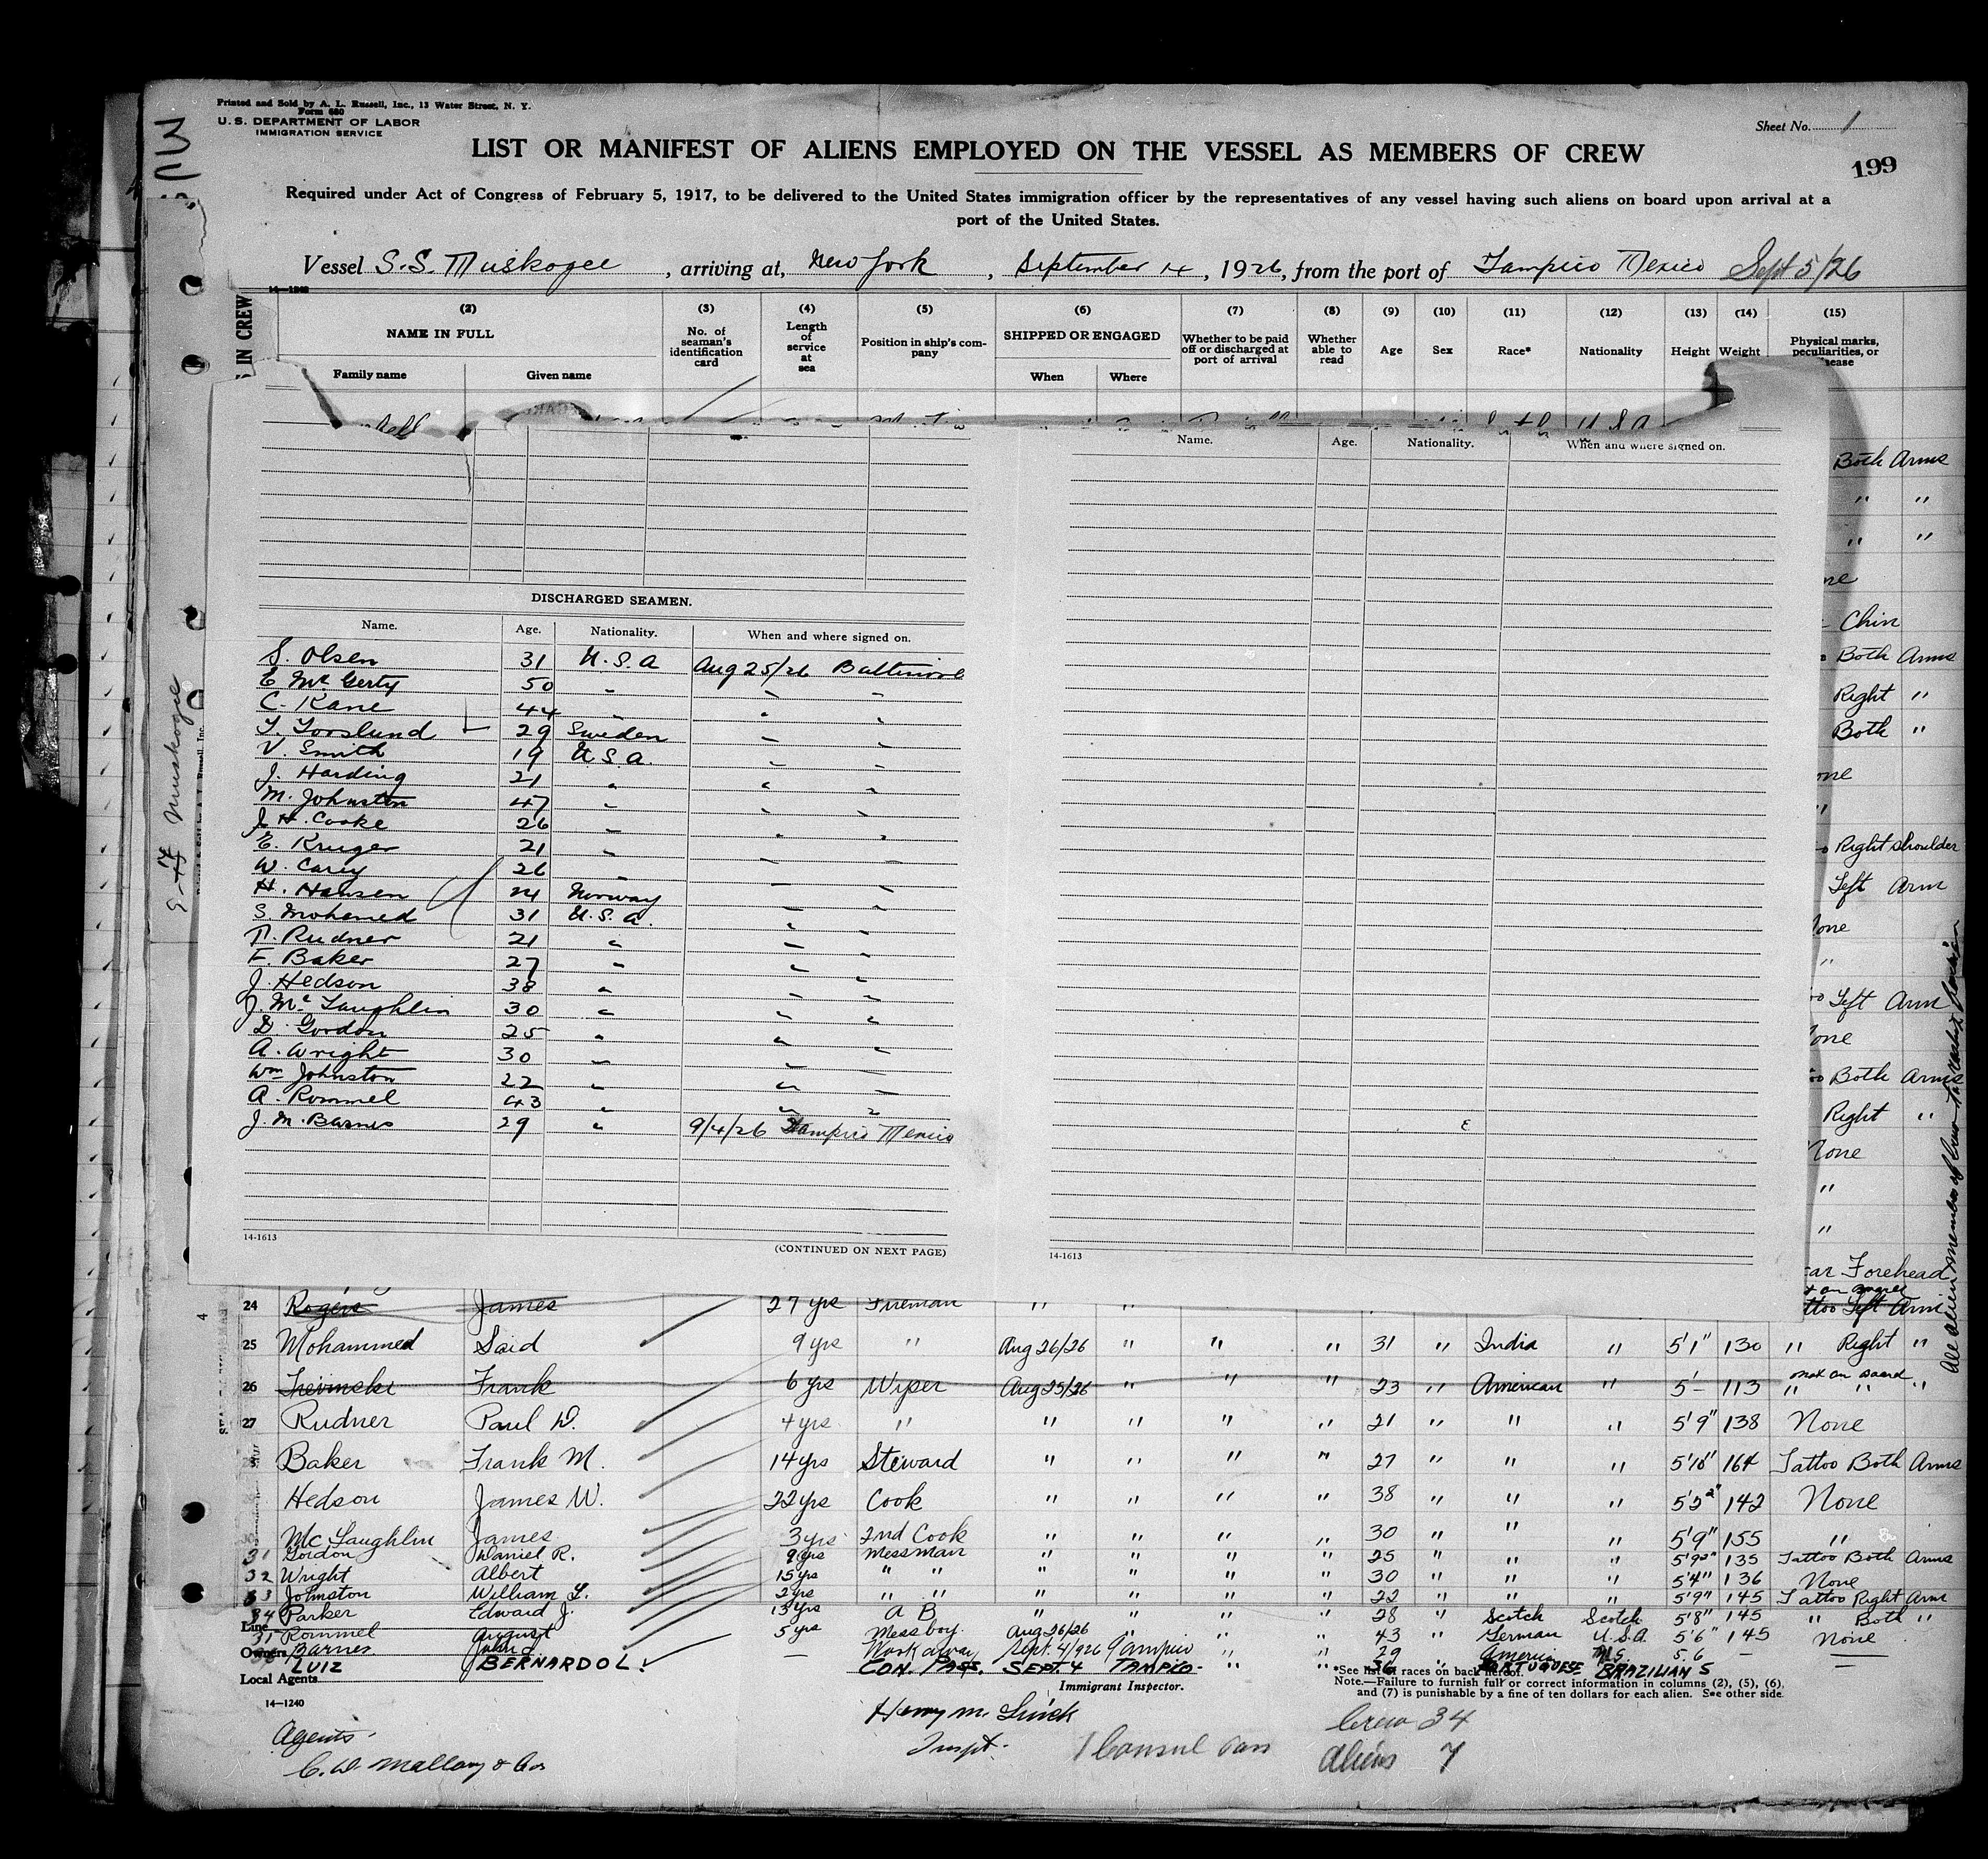 Printed and Sold by A. L. Russell, Inc., 13 Water Street, N. Y.
Form 680
U. S. DEPARTMENT OF LABOR
IMMIGRATION SERVICE
Sheet No. 1
LIST OR MANIFEST OF ALIENS EMPLOYED ON THE VESSEL AS MEMBERS OF CREW
199
Required under Act of Congress of February 5, 1917, to be delivered to the United States immigration officer by the representatives of any vessel having such aliens on board upon arrival at a
port of the United States.
Vessel S.S. Muskogee, arriving at, New York, September 14, 1926, from the port of Tampico Mexico Sept 5/26
14-1240
(2) (3) (4) (5) (6) (7) (8) (9) (10) (11) (12) (13) (14) (15)
NAME IN FULL No. of seaman's identification card Length of service at sea Position in ship's company SHIPPED OR ENGAGED Whether to be paid off or discharged at port of arrival Whether able to read Age Sex Race* Nationality Height Weight Physical marks, peculiarities, or
Family name Given name When Where
IN CREW
Name. Age. Nationality. When and where signed on.
Both Arms
" "
" "
Chin
Both Arms
Right "
Both "
Right shoulder
Left Arm
"
Left Arm
Both Arms
Right "
None
"
"
Forehead
DISCHARGED SEAMEN.
Name. Age. Nationality. When and where signed on.
S. Olsen 31 U.S.A Aug 25/26 Baltimore
E McGerty 50 " " "
C. Kane 44 " " "
29 Sweden " "
V. Smith 19 U.S.A. " "
J. Harding 21 " " "
M. Johnston 47 " " "
J H. Cooke 26 " " "
E. Kruger 21 " " "
W. Carey 26 " " "
H. Hansen 24 Norway " "
S. Mohamed 31 U.S.A. " "
P. Rudner 21 " " "
F. Baker 27 " " "
J. Hedson 38 " " "
J. McLaughlin 30 " " "
D. Gordon 25 " " "
A. Wright 30 " " "
Wm Johnston 22 " " "
A. Rommel 43 " " "
J. M. Barnes 29 " 9/4/26 Tampico Mexico
14-1613
(CONTINUED ON NEXT PAGE)
14-1613
Muskogee
24 Rogers James 27 yrs Fireman " "
Left Arm
25 Mohammed Said 9 yrs " Aug 26/26 " " " 31 " India " 5'1" 130 " Right "
not on board
26 Frank 6 yrs Wiper Aug 25/26 " " " 23 " American " 5'- 113 " " "
27 Rudner Paul D. 4 yrs " " " " " 21 " " " 5'9" 138 None
Baker Frank M. 14 yrs Steward " " " " 27 " " " 5'10" 164 Tattoo Both Arms
Hedson James W. 22 yrs Cook " " " " 38 " " " 5'2" 142 None
McLaughlin James 3 yrs 2nd Cook " " " " 30 " " " 5'9" 155 "
31 Gordon Daniel R. 9 yrs Messman " " " " 25 " " " 5'9" 135 Tattoo Both Arms
32 Wright Albert 15 yrs " " " " " " 30 " " " 5'4" 136 None
33 Johnston William L. 2 yrs " " " " " " 22 " " " 5'9" 145 Tattoo Right Arm
34 Parker Edward J. 13 yrs A B " " " " 28 " Scotch Scotch 5'8" 145 " Both "
Line
Rommel August 5 yrs Mess boy Aug 26/26 " " " 43 " German U.S.A. 5'6" 145 None
Owners Barnes John Workaway Sept. 4/926 Tampico " " 29 " 5.6 —
LUIZ BERNARDO L. CON. PASS. SEPT. 4 TAMPICO- " " 36 " PORTUGUESE BRAZILIAN S
Local Agents
Immigrant Inspector.
*See list of races on back hereof.
Note.—Failure to furnish full or correct information in columns (2), (5), (6)
and (7) is punishable by a fine of ten dollars for each alien. See other side.
14-1240
Agents
C. D. Mallory & Co
Henry M.
Inspt.
1 Consul Pass
Crew 34
Aliens 7